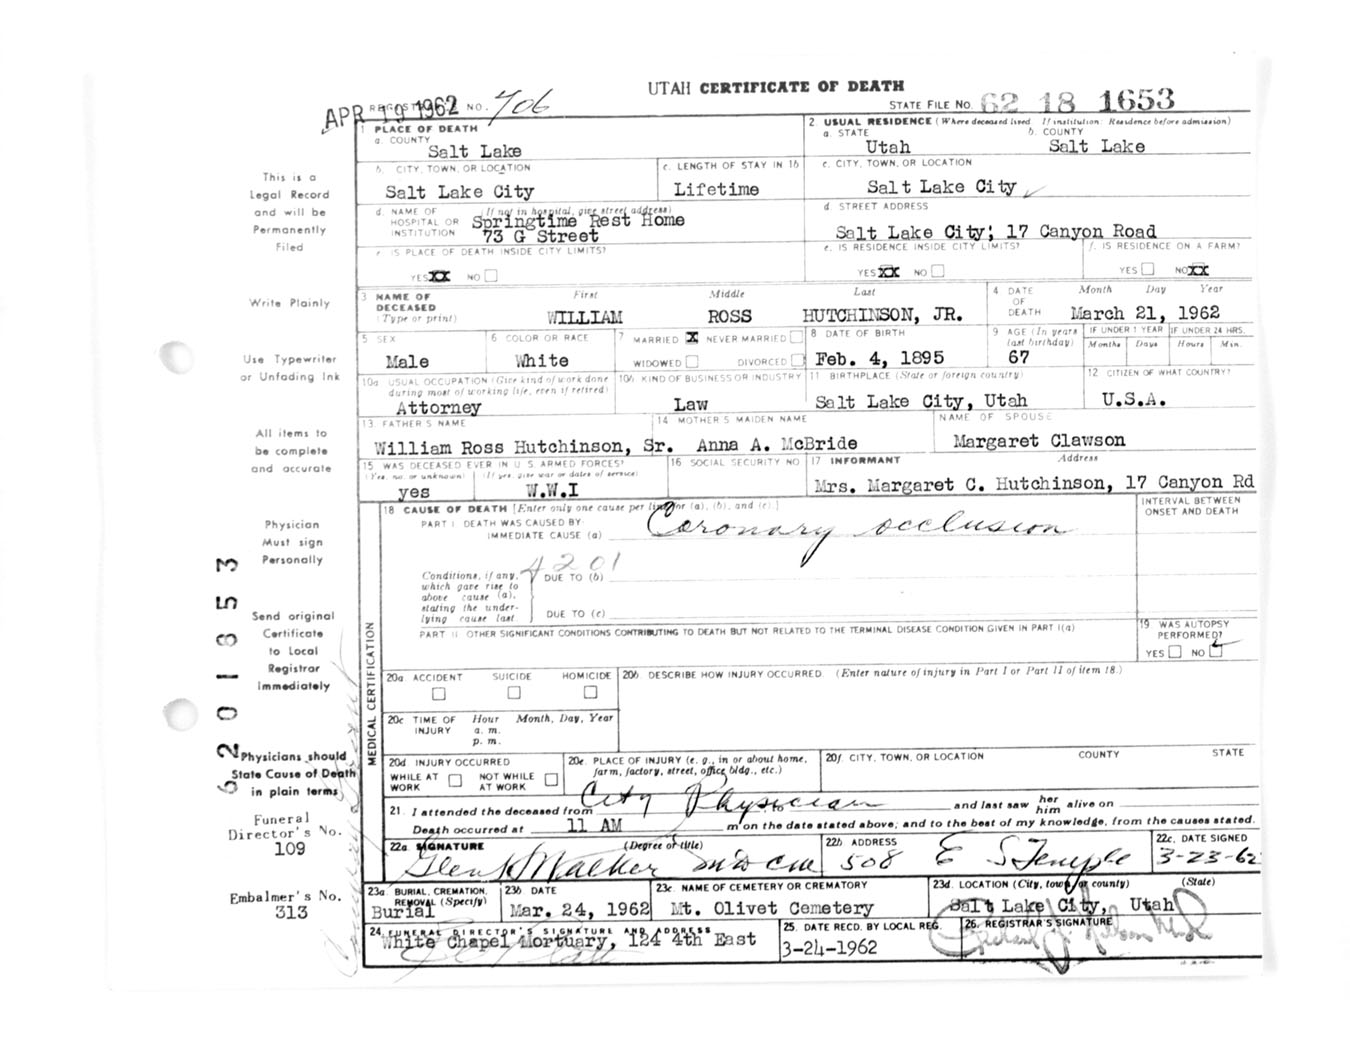 UTAH CERTIFICATE OF DEATH
APR 19 1962 REGISTRAR'S NO. 706
STATE FILE NO. 62 18 1653
1 PLACE OF DEATH
a. COUNTY
Salt Lake
2. USUAL RESIDENCE (Where deceased lived. If institution: Residence before admission)
a. STATE b. COUNTY
Utah Salt Lake
b. CITY, TOWN, OR LOCATION c. LENGTH OF STAY IN 1b c. CITY, TOWN, OR LOCATION
Salt Lake City Lifetime Salt Lake City
d. NAME OF HOSPITAL OR INSTITUTION (If not in hospital, give street address)
Springtime Rest Home
73 G Street
d STREET ADDRESS
Salt Lake City; 17 Canyon Road
e. IS PLACE OF DEATH INSIDE CITY LIMITS? e. IS RESIDENCE INSIDE CITY LIMITS? f. IS RESIDENCE ON A FARM?
YES XX NO YES XX NO YES NO XX
3 NAME OF DECEASED (Type or print) First Middle Last
WILLIAM ROSS HUTCHINSON, JR.
4 DATE OF DEATH Month Day Year
March 21, 1962
5 SEX 6 COLOR OR RACE 7 MARRIED X NEVER MARRIED 8 DATE OF BIRTH 9 AGE (In years last birthday) IF UNDER 1 YEAR IF UNDER 24 HRS.
Months Days Hours Min.
Male White WIDOWED DIVORCED Feb. 4, 1895 67
10a USUAL OCCUPATION (Give kind of work done during most of working life, even if retired) 10b KIND OF BUSINESS OR INDUSTRY 11 BIRTHPLACE (State or foreign country) 12 CITIZEN OF WHAT COUNTRY?
Attorney Law Salt Lake City, Utah U.S.A.
13. FATHER'S NAME 14 MOTHER'S MAIDEN NAME NAME OF SPOUSE
William Ross Hutchinson, Sr. Anna A. McBride Margaret Clawson
15 WAS DECEASED EVER IN U.S. ARMED FORCES? 16 SOCIAL SECURITY NO 17 INFORMANT Address
(Yes, no, or unknown) (If yes, give war or dates of service)
yes W.W.I Mrs. Margaret C. Hutchinson, 17 Canyon Rd
18 CAUSE OF DEATH [Enter only one cause per line for (a), (b), and (c).] INTERVAL BETWEEN ONSET AND DEATH
PART I. DEATH WAS CAUSED BY:
IMMEDIATE CAUSE (a) Coronary occlusion
4201
Conditions, if any, which gave rise to above cause (a), stating the underlying cause last.
DUE TO (b)
DUE TO (c)
PART II. OTHER SIGNIFICANT CONDITIONS CONTRIBUTING TO DEATH BUT NOT RELATED TO THE TERMINAL DISEASE CONDITION GIVEN IN PART I(a)
19. WAS AUTOPSY PERFORMED?
YES NO
20a ACCIDENT SUICIDE HOMICIDE 20b DESCRIBE HOW INJURY OCCURRED. (Enter nature of injury in Part I or Part II of item 18.)
20c TIME OF INJURY Hour Month, Day, Year
a. m.
p. m.
20d INJURY OCCURRED
WHILE AT WORK NOT WHILE AT WORK
20e. PLACE OF INJURY (e. g., in or about home, farm, factory, street, office bldg., etc.)
20f. CITY, TOWN, OR LOCATION COUNTY STATE
21. I attended the deceased from City Physician to and last saw her him alive on
Death occurred at 11 AM m on the date stated above; and to the best of my knowledge, from the causes stated.
22a SIGNATURE (Degree or title) 22b ADDRESS 22c. DATE SIGNED
Walker 508 E S Temple 3-23-62
23a BURIAL, CREMATION, REMOVAL (Specify) 23b DATE 23c. NAME OF CEMETERY OR CREMATORY 23d. LOCATION (City, town, or county) (State)
Burial Mar. 24, 1962 Mt. Olivet Cemetery Salt Lake City, Utah
24. FUNERAL DIRECTOR'S SIGNATURE AND ADDRESS 25. DATE RECD. BY LOCAL REG. 26. REGISTRAR'S SIGNATURE
White Chapel Mortuary, 124 4th East
3-24-1962
MEDICAL CERTIFICATION
This is a
Legal Record
and will be
Permanently
Filed
Write Plainly
Use Typewriter
or Unfading Ink
All items to
be complete
and accurate
Physician
Must sign
Personally
Send original
Certificate
to Local
Registrar
Immediately
Physicians should
State Cause of Death
in plain terms
Funeral
Director's No.
109
Embalmer's No.
313